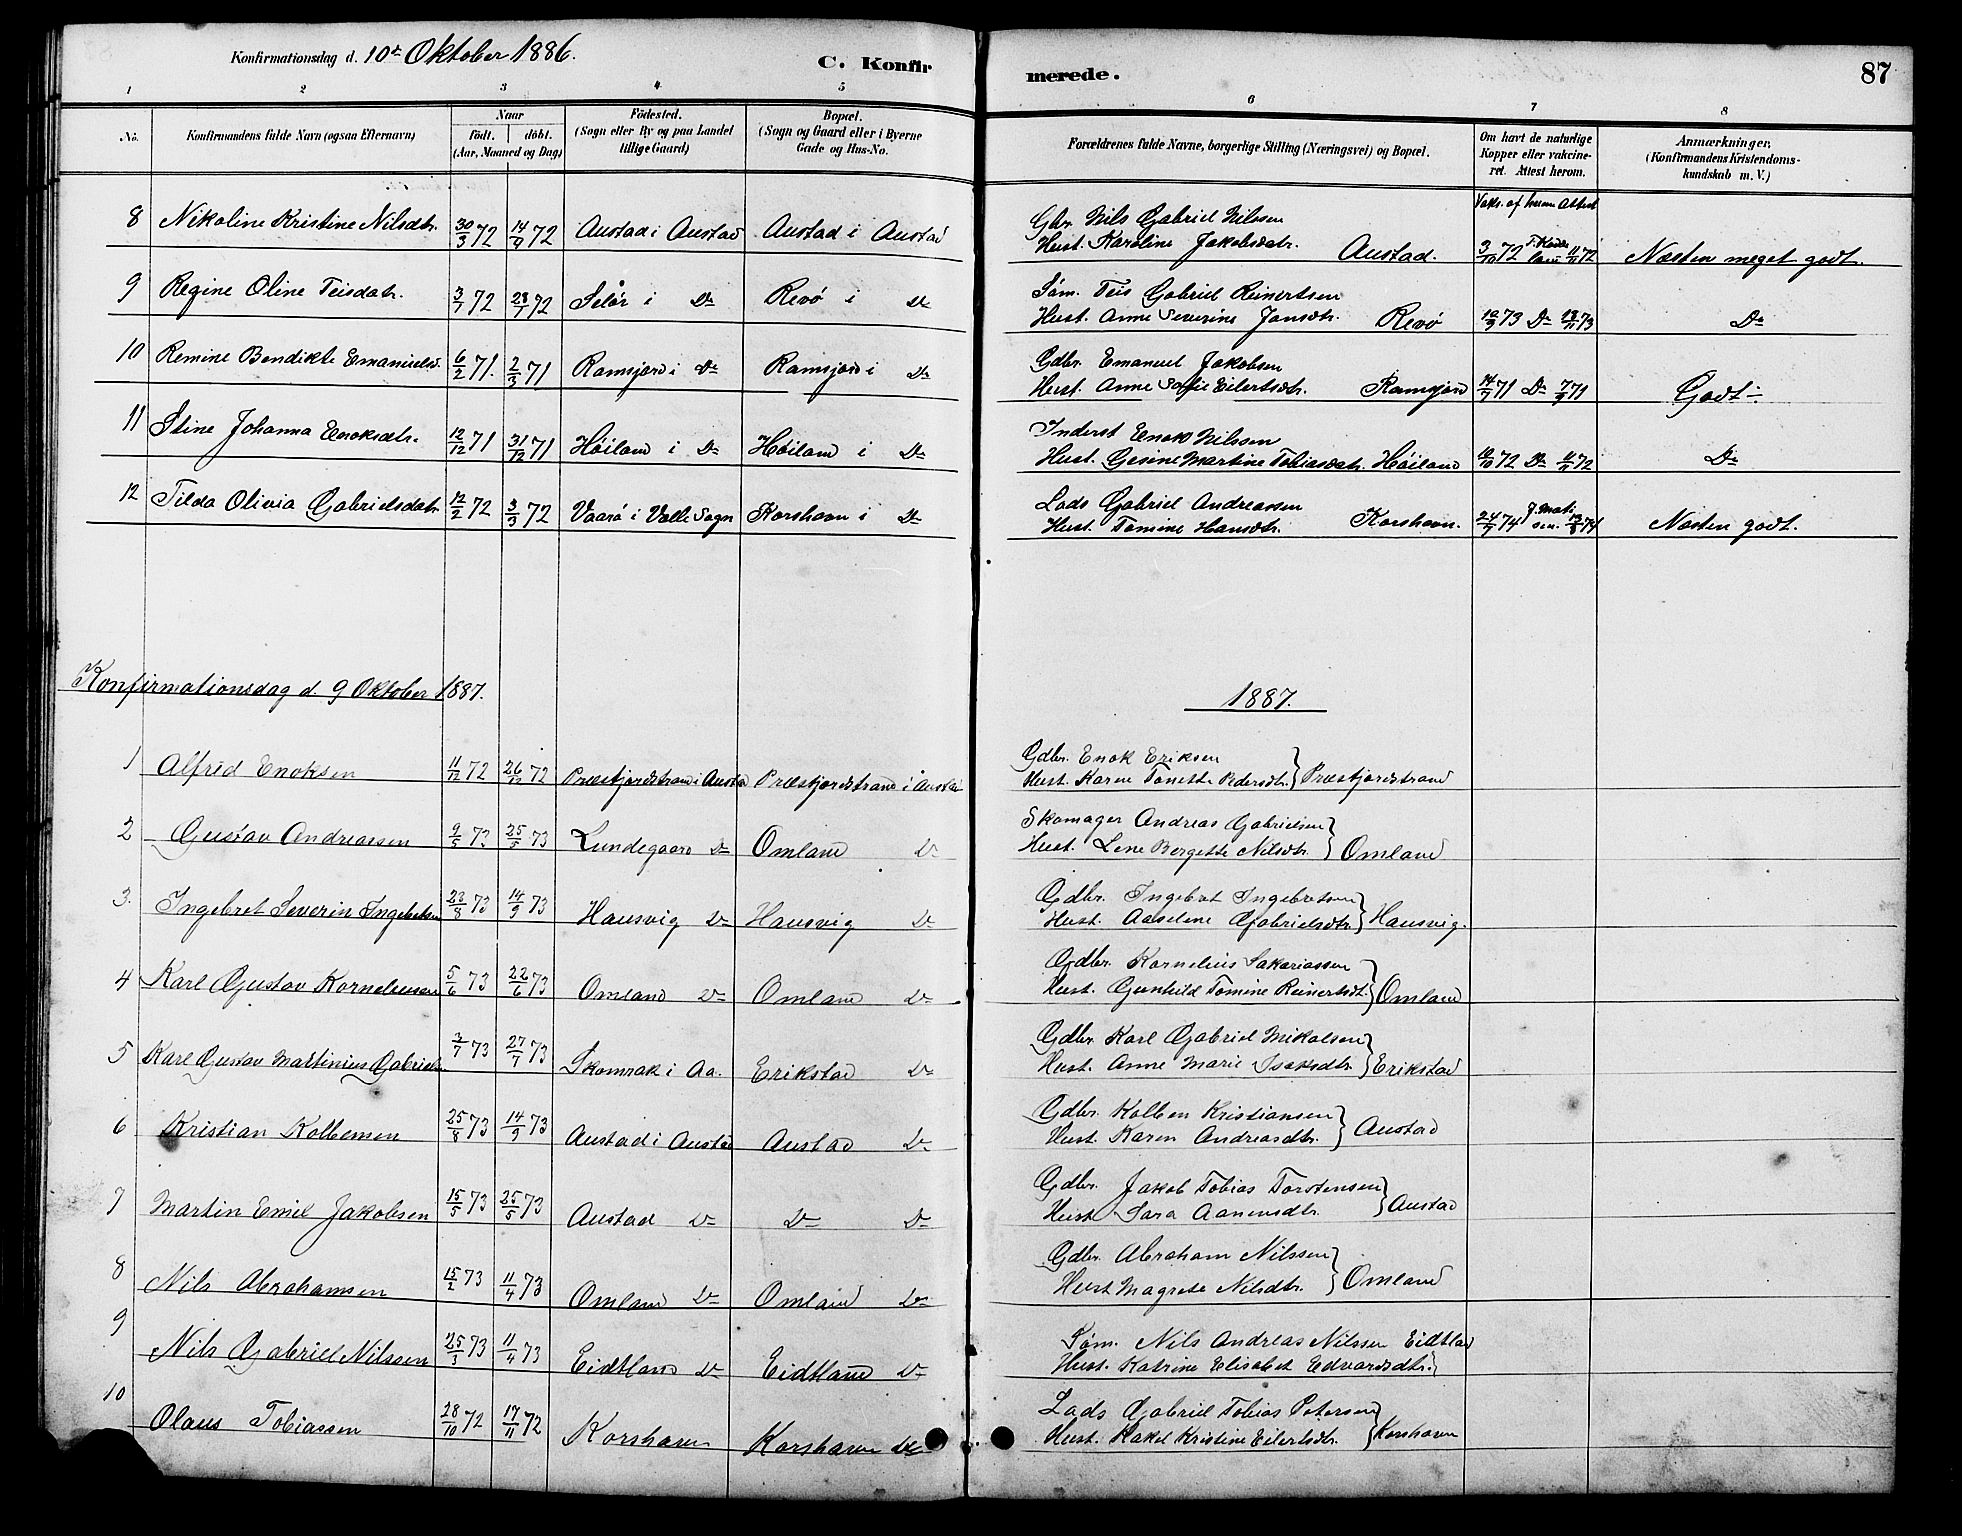 Konfirmationsdag d. 10de Oktober 1886.
C. Konfirmerede.
87
1 2 3 4 5 6 7 8
No. Konfirmandens fulde Navn (ogsaa Efternavn) Naar födt. döbt. (Aar, Maaned og Dag) Födested. (Sogn eller By og paa Landet tillige Gaard) Bopæl. (Sogn og Gaard eller i Byerne Gade og Hus-No. Forældrenes fulde Navne, borgerlige Stilling (Næringsvei) og Bopæl. Om havt de naturlige Kopper eller vakcineret. Attest herom. Anmærkninger, (Konfirmandens Kristendomskundskab m. V.)
8 Nikoline Kristine Nilsdtr. 30/3 72 14/9 72 Austad i Austad Austad i Austad Gbr. Nils Gabriel Nilssen
Hust. Karoline Jakobsdtr. Austad. 3/10 72 11/11 72 Næsten meget godt.
9 Regine Oline Teisdatr. 3/7 72 28/7 72 Selör i Do Revö i Do Söm. Teis Gabriel Reinertsen
Hust. Anne Severine Jansdtr. Revö 10/9 73 Do 18/11 73 Do
10 Remine Bendikte Emanuelsd. 6/2 71. 2/3 71 Ramsjord i Do Ramsjord i Do Gdbr. Emanuel Jakobsen
Hust. Anne Sofie Eilertsdtr. Ramsjord 14/7 71 Do 7/9 71 Godt ÷
11 Stine Johanna Enoksdtr. 12/12 71 31/12 71 Höiland i Do Höiland i Do Inderst Enok Nilssen
Hust. Gesine Martine Tobiasdatr. Höiland 72 Do 72 Do
12 Tilda Olivia Gabrielsdatr 12/2 72 3/3 72 Vaarö i Valle Sogn Korshavn i Do Lods Gabriel Andreassen
Hust. Tomine Hansdtr. Korshavn. 24/7 74 74 Næsten godt.
Konfirmationsdag d. 9 Oktober 1887.
1887.
1 Alfred Enoksen 11/12 72 26/12 72 Præstfjordstrand i Austad Præstfjordstrand i Austad Gdbr. Enok Eriksen
Hust. Karen Tonette Pedersdtr. Præstfjordstrand
2 Gustav Andreassen 9/5 73 25/5 73 Lundegaard Do Omland Do Skomager Andreas Gabrielsen
Hust. Lene Bergette Nilsdtr. Omland
3. Ingebret Severin Ingebretsen 23/8 73 14/9 73 Hausvig Do Hausvig Do Gdbr. Ingebret Ingebretsen
Hust. Aaselene Gabrielsdtr. Hausvig.
4 Karl Gustav Korneliussen 5/6 73 22/6 73 Omland Do Omland Do Gdbr. Kornelius Sakariassen
Hust. Gunhild Tomine Reinertsdt. Omland
5 Karl Gustav Martinius Gabriels. 3/7 73 27/7 73 Skomrak i Aa. Erikstad Do Gdbr. Karl Gabriel Mikalsen
Hust. Anne Marie Isaksdtr. Erikstad
6 Kristian Kolbensen 25/8 73 14/9 73 Austad i Austad Austad Do Gdbr. Kolben Kristiansen
Hust. Karen Andreasdtr. Austad
7 Martin Emil Jakobsen 15/5 73 25/5 73 Austad Do Do Do Gdbr. Jakob Tobias Torstensen
Hust. Sara Aanensdtr. Austad
8 Nils Abrahamsen 15/2 73 11/4 73 Omland Do Omland Do Gdbr. Abraham Nilssen
Hust Magrete Nilsdtr. Omland
9 Nils Gabriel Nilssen 25/3 73 11/4 73 Eidtland Do Eidtland Do Söm. Nils Andreas Nilssen Eidtland
Hust. Katrine Elisabet Edvardsdtr.
10 Olaus Tobiassen 28/10 72 17/11 72 Korshavn Korshavn Do Lods Gabriel Tobias Petersen
Hust. Rakel Kristine Eilertsdtr. Korshavn